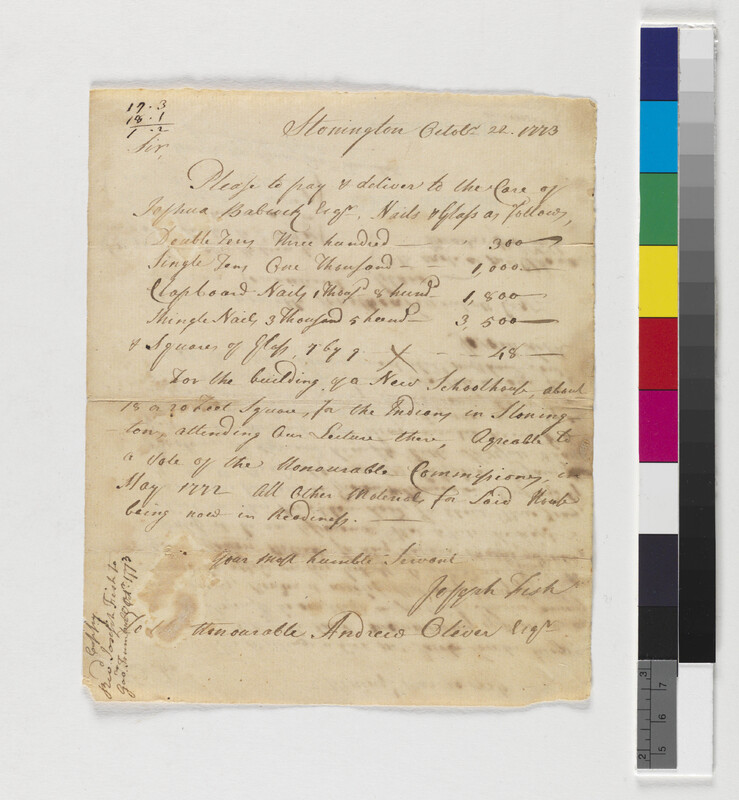 17.3
18.1
1.2
Stonington Octobr. 22. 1773
Sir,
Please to pay & deliver to the Care of
Joshua Babcock Esqr. Nails & Glass as follows,
Double Tens Three hundred — 300
Single Tens One Thousand — 1,000
Clapboard Nails 1 thousd. 8 hund — 1,800
Shingle Nails 3 Thousand 5 hund — 3,500
& Squares of Glass, 7 by 9. X — 48
For the building of a New Schoolhouse, about
18 or 20 Feet Square, for the Indians in Stoning-
ton, attending Our Lecture there, Agreable to
a Vote of the Honourable Commissioners, in
May 1772 All Other Materials for Said House
being now in Readiness. —
Your most humble Servant
Joseph Fish
To Honourable Andrew Oliver Esqr.
Copy
Revd. Joseph Fish to
Octr. 1773
2
3
5
6
7